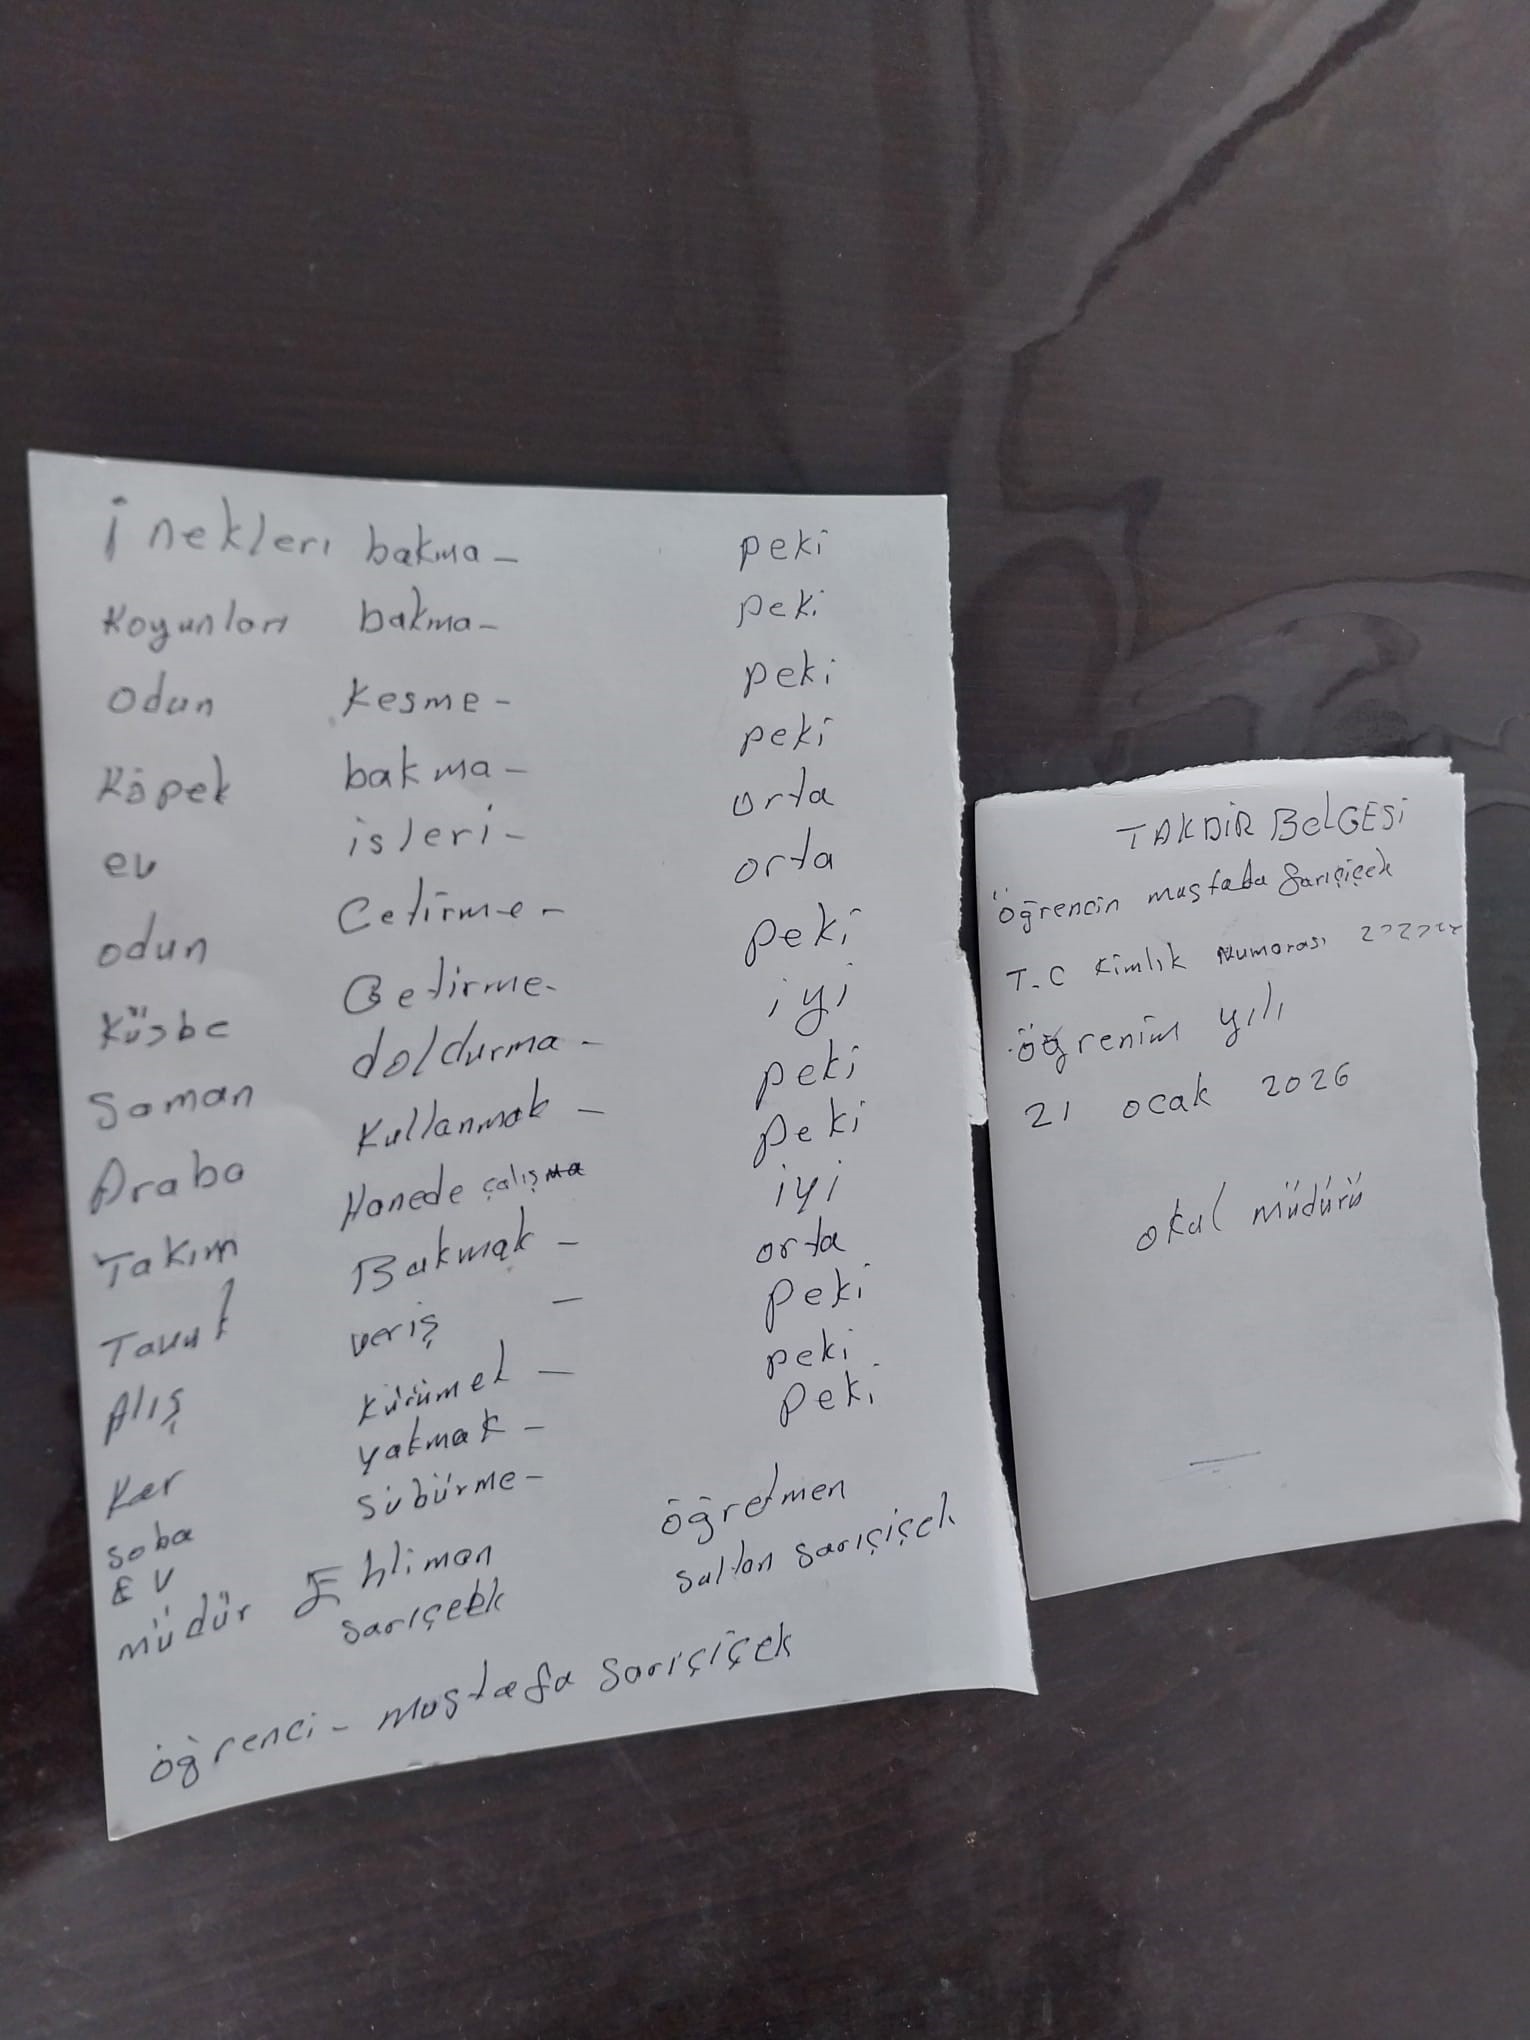 İnekleri bakma - peki
Koyunları bakma - peki
Odun kesme - peki
Köpek bakma - peki
ev isleri - orta
odun Cetirme - orta
Küsbe Getirme - peki
Saman doldurma - iyi
Araba Kullanmak - peki
Takım Hanede çalışma peki
Tavuk Bakmak - iyi
Alış veriş - orta
Kar Kürümek - peki
Soba yakmak - peki
EV Sübürme - peki
müdür Ehliman Sarıçek öğretmen
Sultan Sarıçiçek
öğrenci - mustafa Sarıçiçek
TAKDİR BELGESİ
öğrencin mustafa Sarıçiçek
T.C Kimlik Numarası
öğrenim yılı
21 ocak 2026
okul müdürü